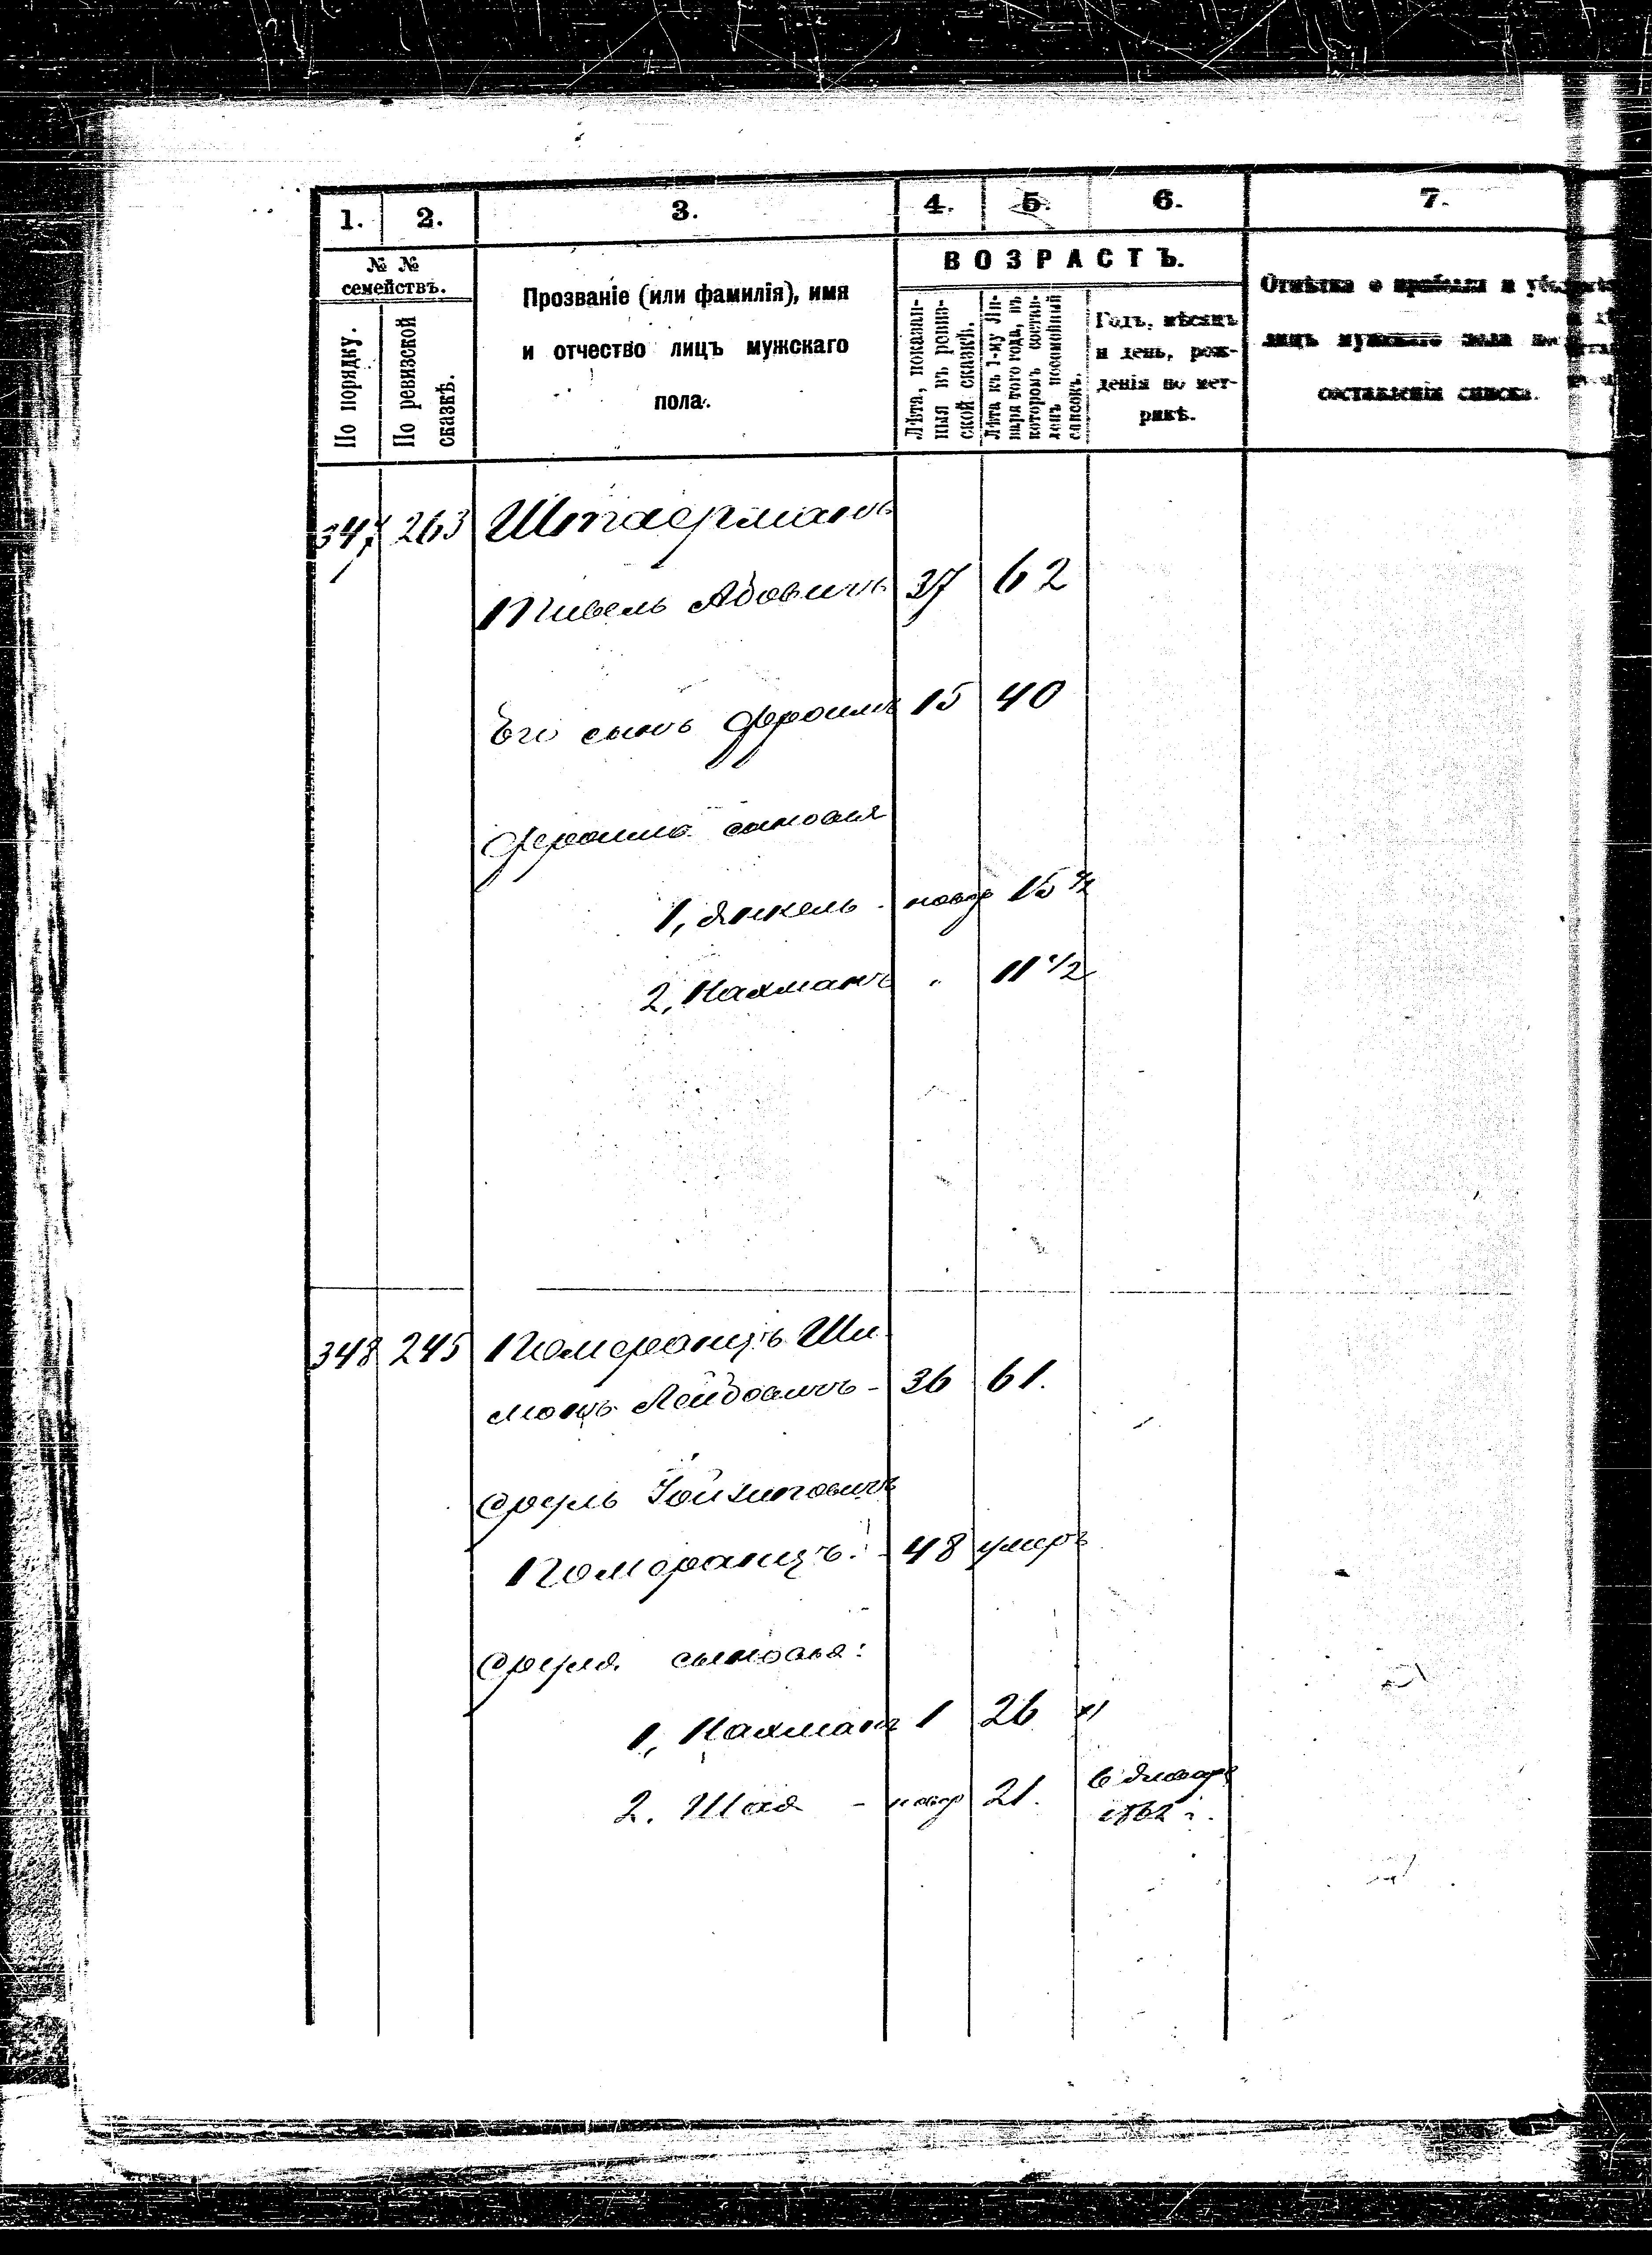 1. 2. 3. 4. 5. 6. 7.
№ №
семействъ.
По порядку.
По ревизской
сказкѣ.
Прозваніе (или фамилія), имя
и отчество лицъ мужскаго
пола.
ВОЗРАСТЪ.
Лѣта, показан-
ныя въ ревиз-
ской сказкѣ.
Лѣта къ 1-му Ян-
варя того года, въ
которомъ состав-
ленъ посемейный
списокъ.
Годъ, мѣсяцъ
и день, рож-
денія по мет-
рикѣ.
Отмѣтка о прибыли и
лицъ мужскаго пола
составленія списка.
347 263 Штаерманъ
Абовичъ 37 62
Его сынъ Фроимъ 15 40
Фроима сыновья
1, Янкель - новор 15 1/2
2, Нахманъ " 11 1/2
348 245 Померанцъ Ши
монъ Лейбовичъ - 36 61.
Сруль
Померанцъ. - 48 умеръ
Сруля сыновья:
1, Нахманъ 1 26
2. Шая - новор 21. 6 Января
1862 г.